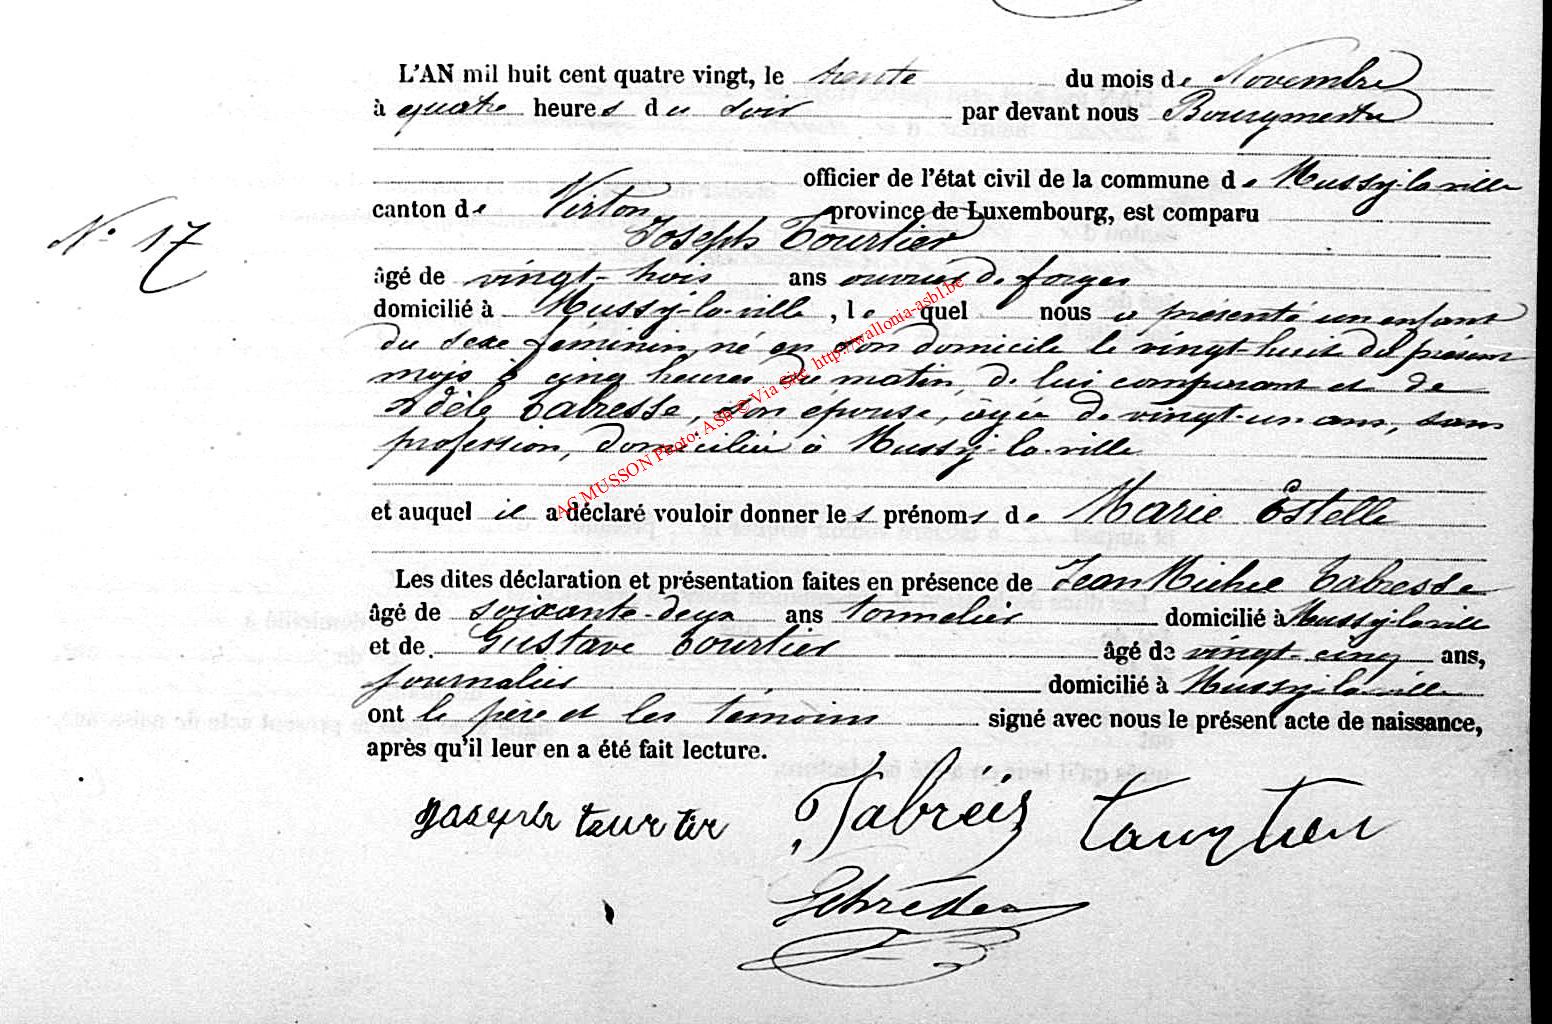 L'AN mil huit cent quatre vingt, le trente du mois de Novembre
à quatre heures du soir par devant nous Bourgmestre
officier de l'état civil de la commune de Mussy-la-ville
N° 17
canton de Virton province de Luxembourg, est comparu
Joseph Tourtier
âgé de vingt-trois ans ouvrier de forges
domicilié à Mussy-la-ville, le quel nous a présenté un enfant
du sexe féminin, né en son domicile le vingt-huit du présent
mois à cinq heures du matin, de lui comparant et de
Adèle Tabresse, son épouse, âgée de vingt-un ans, sans
profession, domiciliée à Mussy-la-ville
AC MUSSON Photo: ASB © Via Site http://wallonia-asbl.be
et auquel il a déclaré vouloir donner les prénoms de Marie Estelle
Les dites déclaration et présentation faites en présence de Jean Michel Tabresse
âgé de soixante-deux ans tonnelier domicilié à Mussy-la-ville
et de Gustave Tourtier âgé de vingt-cinq ans,
journalier domicilié à Mussy-la-ville
ont le père et les témoins signé avec nous le présent acte de naissance,
après qu'il leur en a été fait lecture.